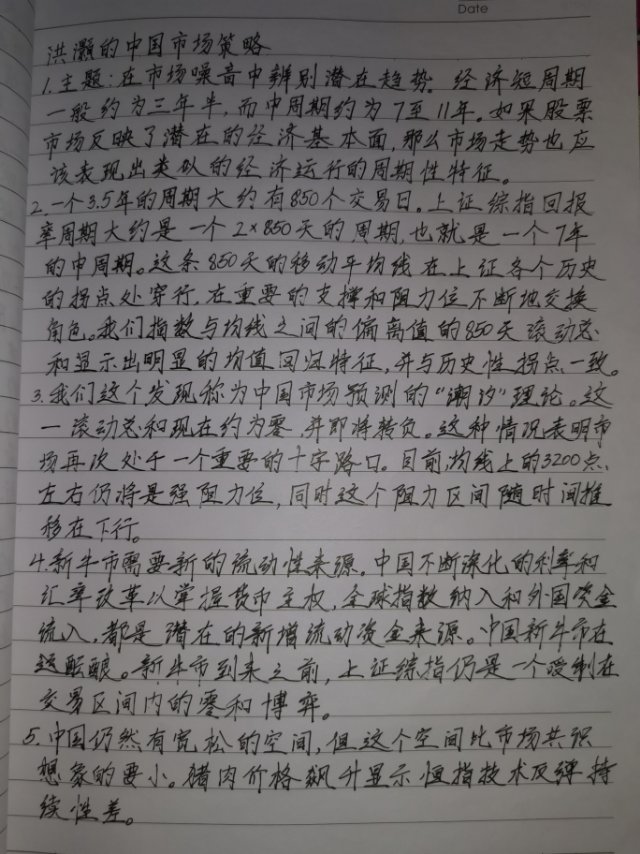 Date
洪灏的中国市场策略
1.主题:在市场噪音中辨别潜在趋势。经济短周期
一般约为三年半,而中周期约为7至11年。如果股票
市场反映了潜在的经济基本面,那么市场走势也应
该表现出类似的经济运行的周期性特征。
2.一个3.5年的周期大约有850个交易日。上证综指回报
率周期大约是一个2×850天的周期,也就是一个7年
的中周期。这条850天的移动平均线在上证各个历史
的拐点处穿行,在重要的支撑和阻力位不断地交换
角色。我们指数与均线之间的偏离值的850天滚动总
和显示出明显的均值回归特征,并与历史性拐点一致。
3.我们这个发现称为中国市场预测的“潮汐”理论。这
一滚动总和现在约为零,并即将转负。这种情况表明市
场再次处于一个重要的十字路口。目前,均线上的3200点
左右仍将是强阻力位,同时这个阻力区间随时间推
移在下行。
4.新牛市需要新的流动性来源。中国不断深化的利率和
汇率改革以掌握货币主权,全球指数纳入和外国资金
流入,都是潜在的新增流动资金来源。中国新牛市在
这酝酿。新牛市到来之前,上证综指仍是一个受制在
交易区间内的零和博弈。
5.中国仍然有宽松的空间,但这个空间比市场共识
想象的要小。猪肉价格飙升显示恒指技术反弹持
续性差。